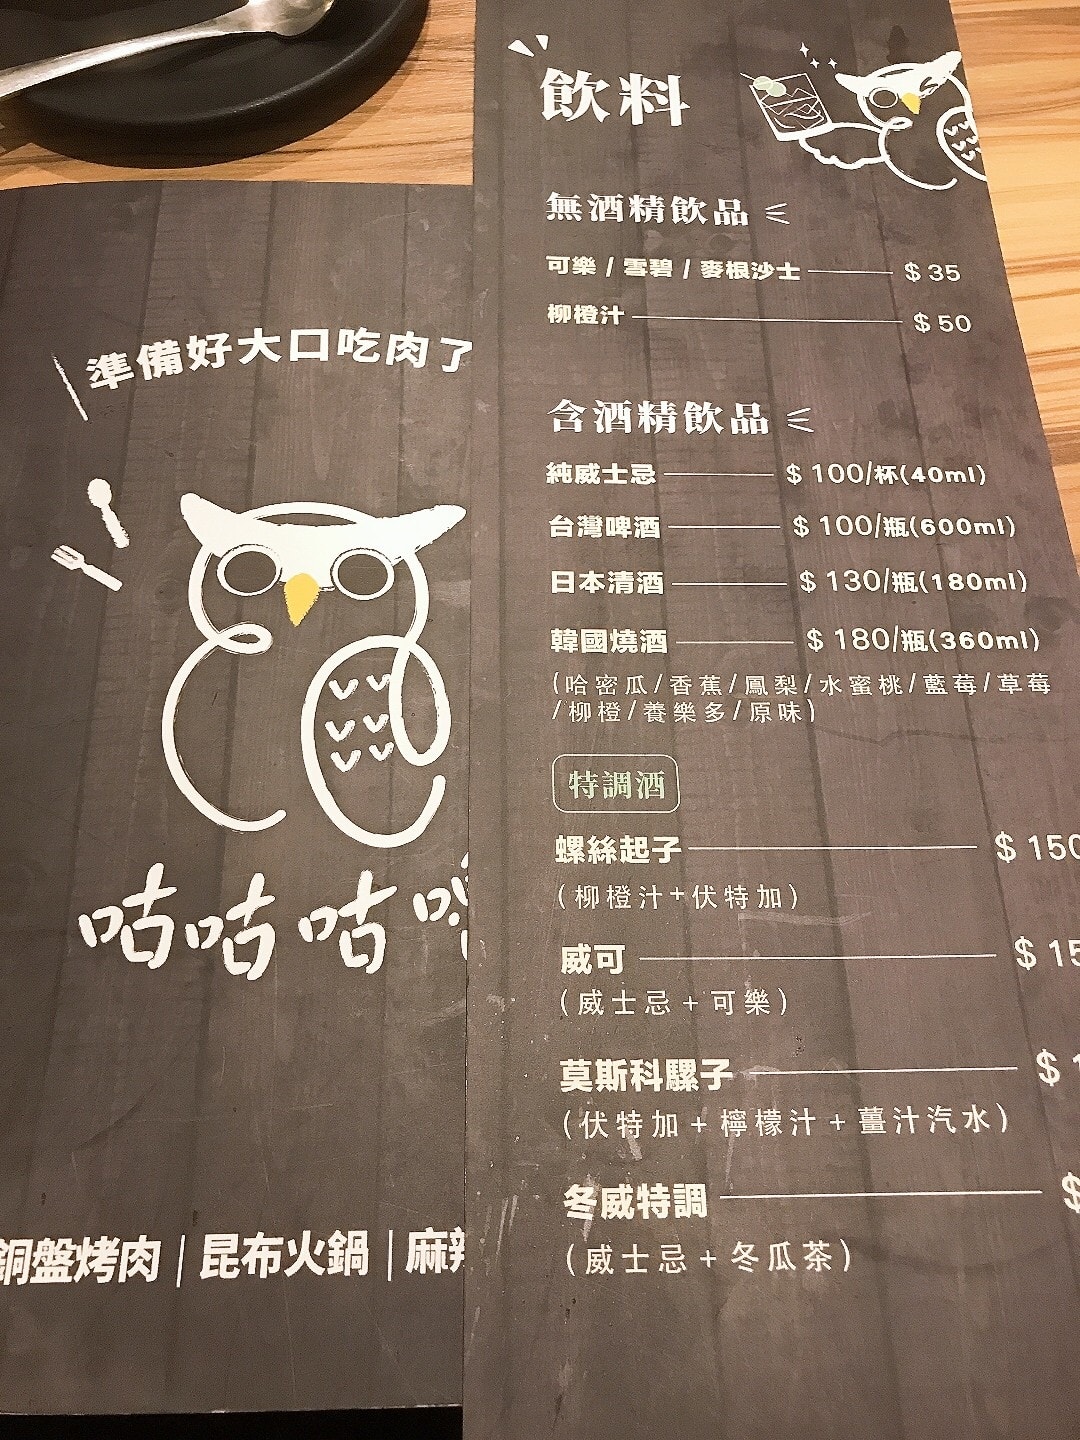 準備好大口吃肉了
咕咕咕
銅盤烤肉｜昆布火鍋｜麻辣
飲料
無酒精飲品
可樂 / 雪碧 / 麥根沙士 $ 35
柳橙汁 $ 50
含酒精飲品
純威士忌 $ 100/杯(40ml)
台灣啤酒 $ 100/瓶(600ml)
日本清酒 $ 130/瓶(180ml)
韓國燒酒 $ 180/瓶(360ml)
(哈密瓜/香蕉/鳳梨/水蜜桃/藍莓/草莓
/柳橙/養樂多/原味)
特調酒
螺絲起子 $ 150
(柳橙汁+伏特加)
威可 $ 15
(威士忌+可樂)
莫斯科騾子 $ 1
(伏特加+檸檬汁+薑汁汽水)
冬威特調 $
(威士忌+冬瓜茶)